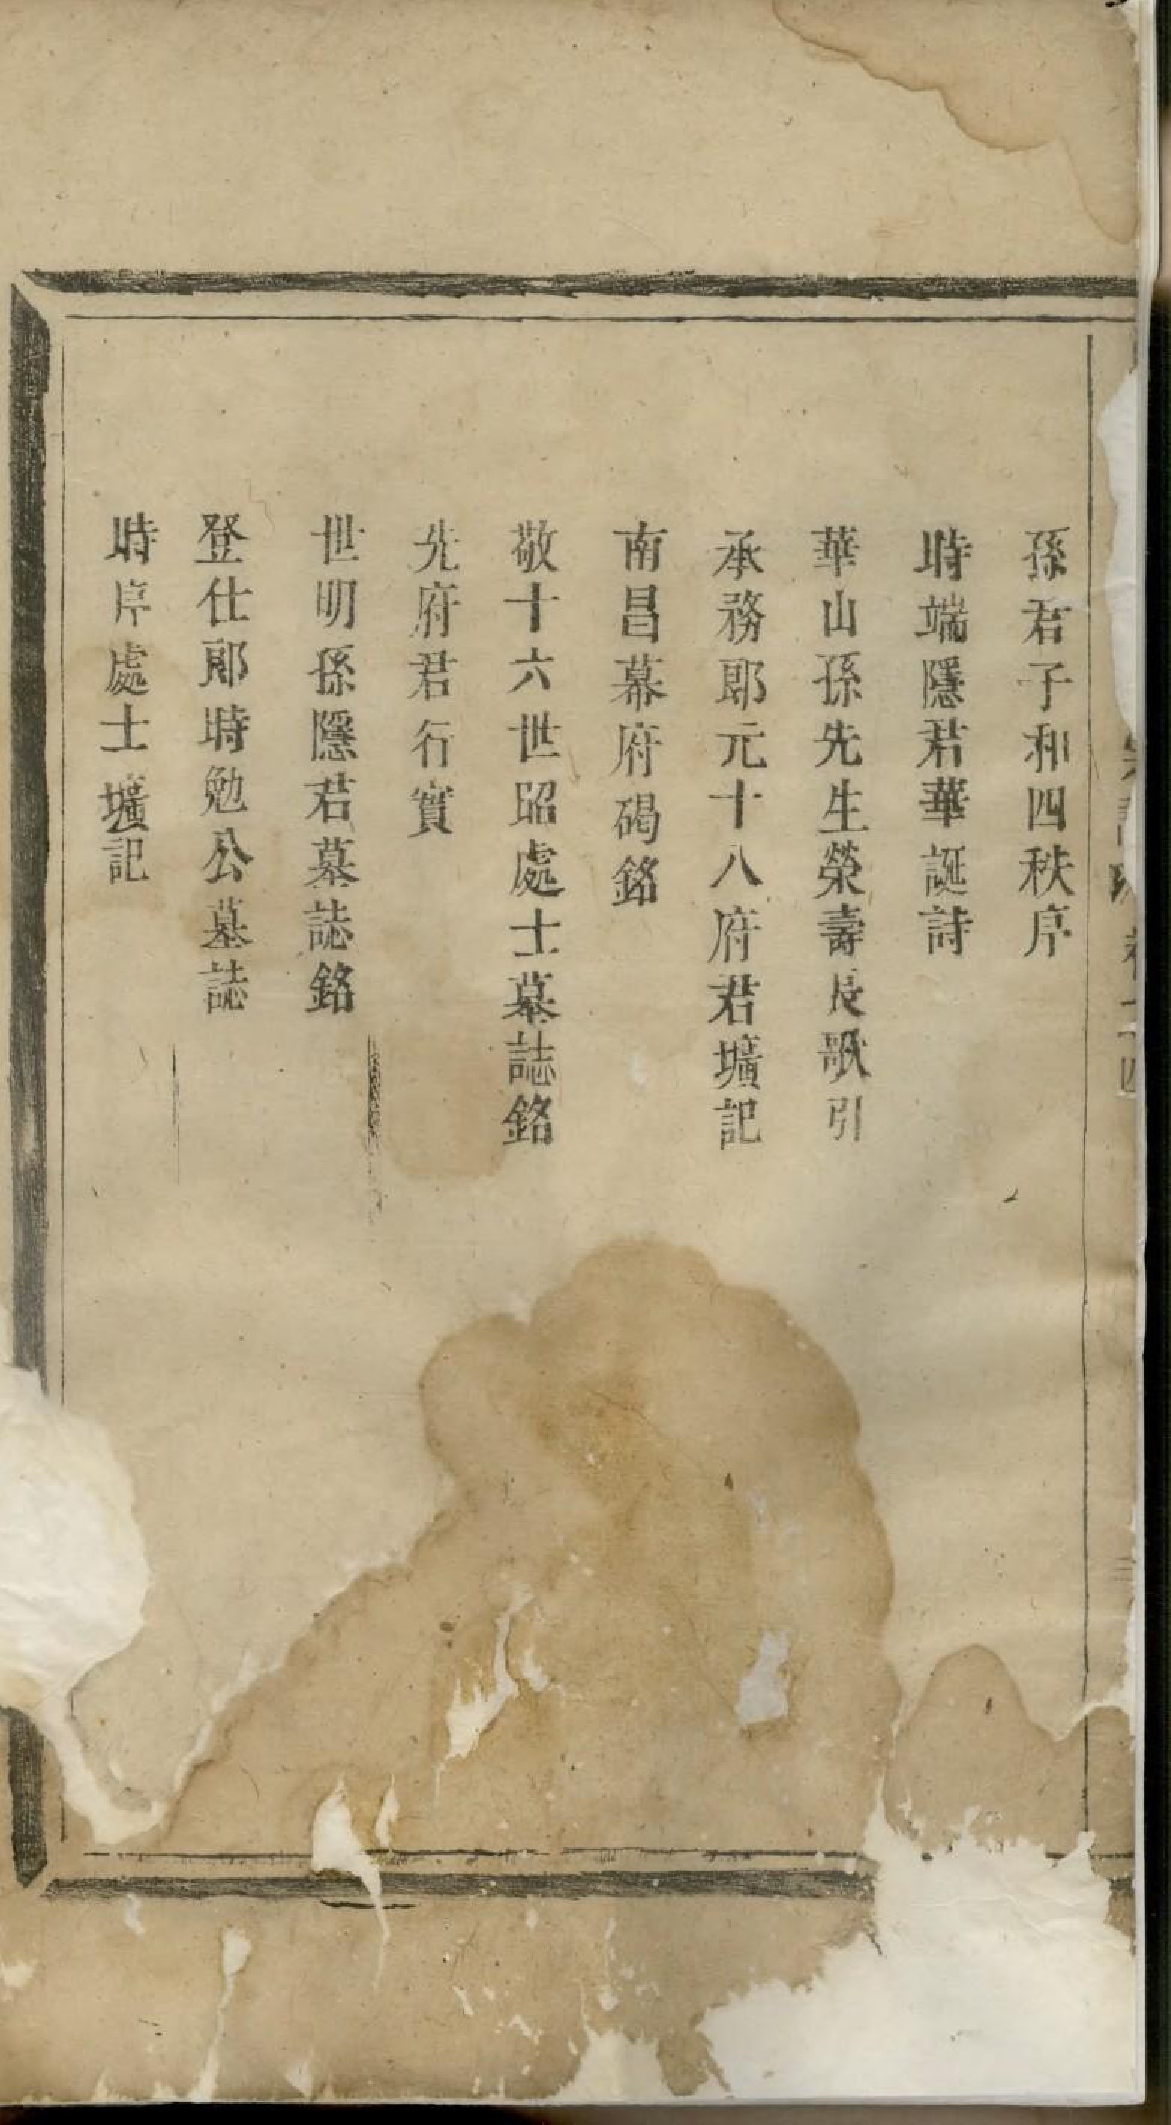 孫君子和四秩序
時端隱君華誕詩
華山孫先生榮壽長歌引
承務郎元十八府君壙記
南昌幕府碣銘
敬十六世昭處士墓誌銘
先府君行實
世明孫隱君墓誌銘
登仕郎時勉公墓誌
時序處士壙記